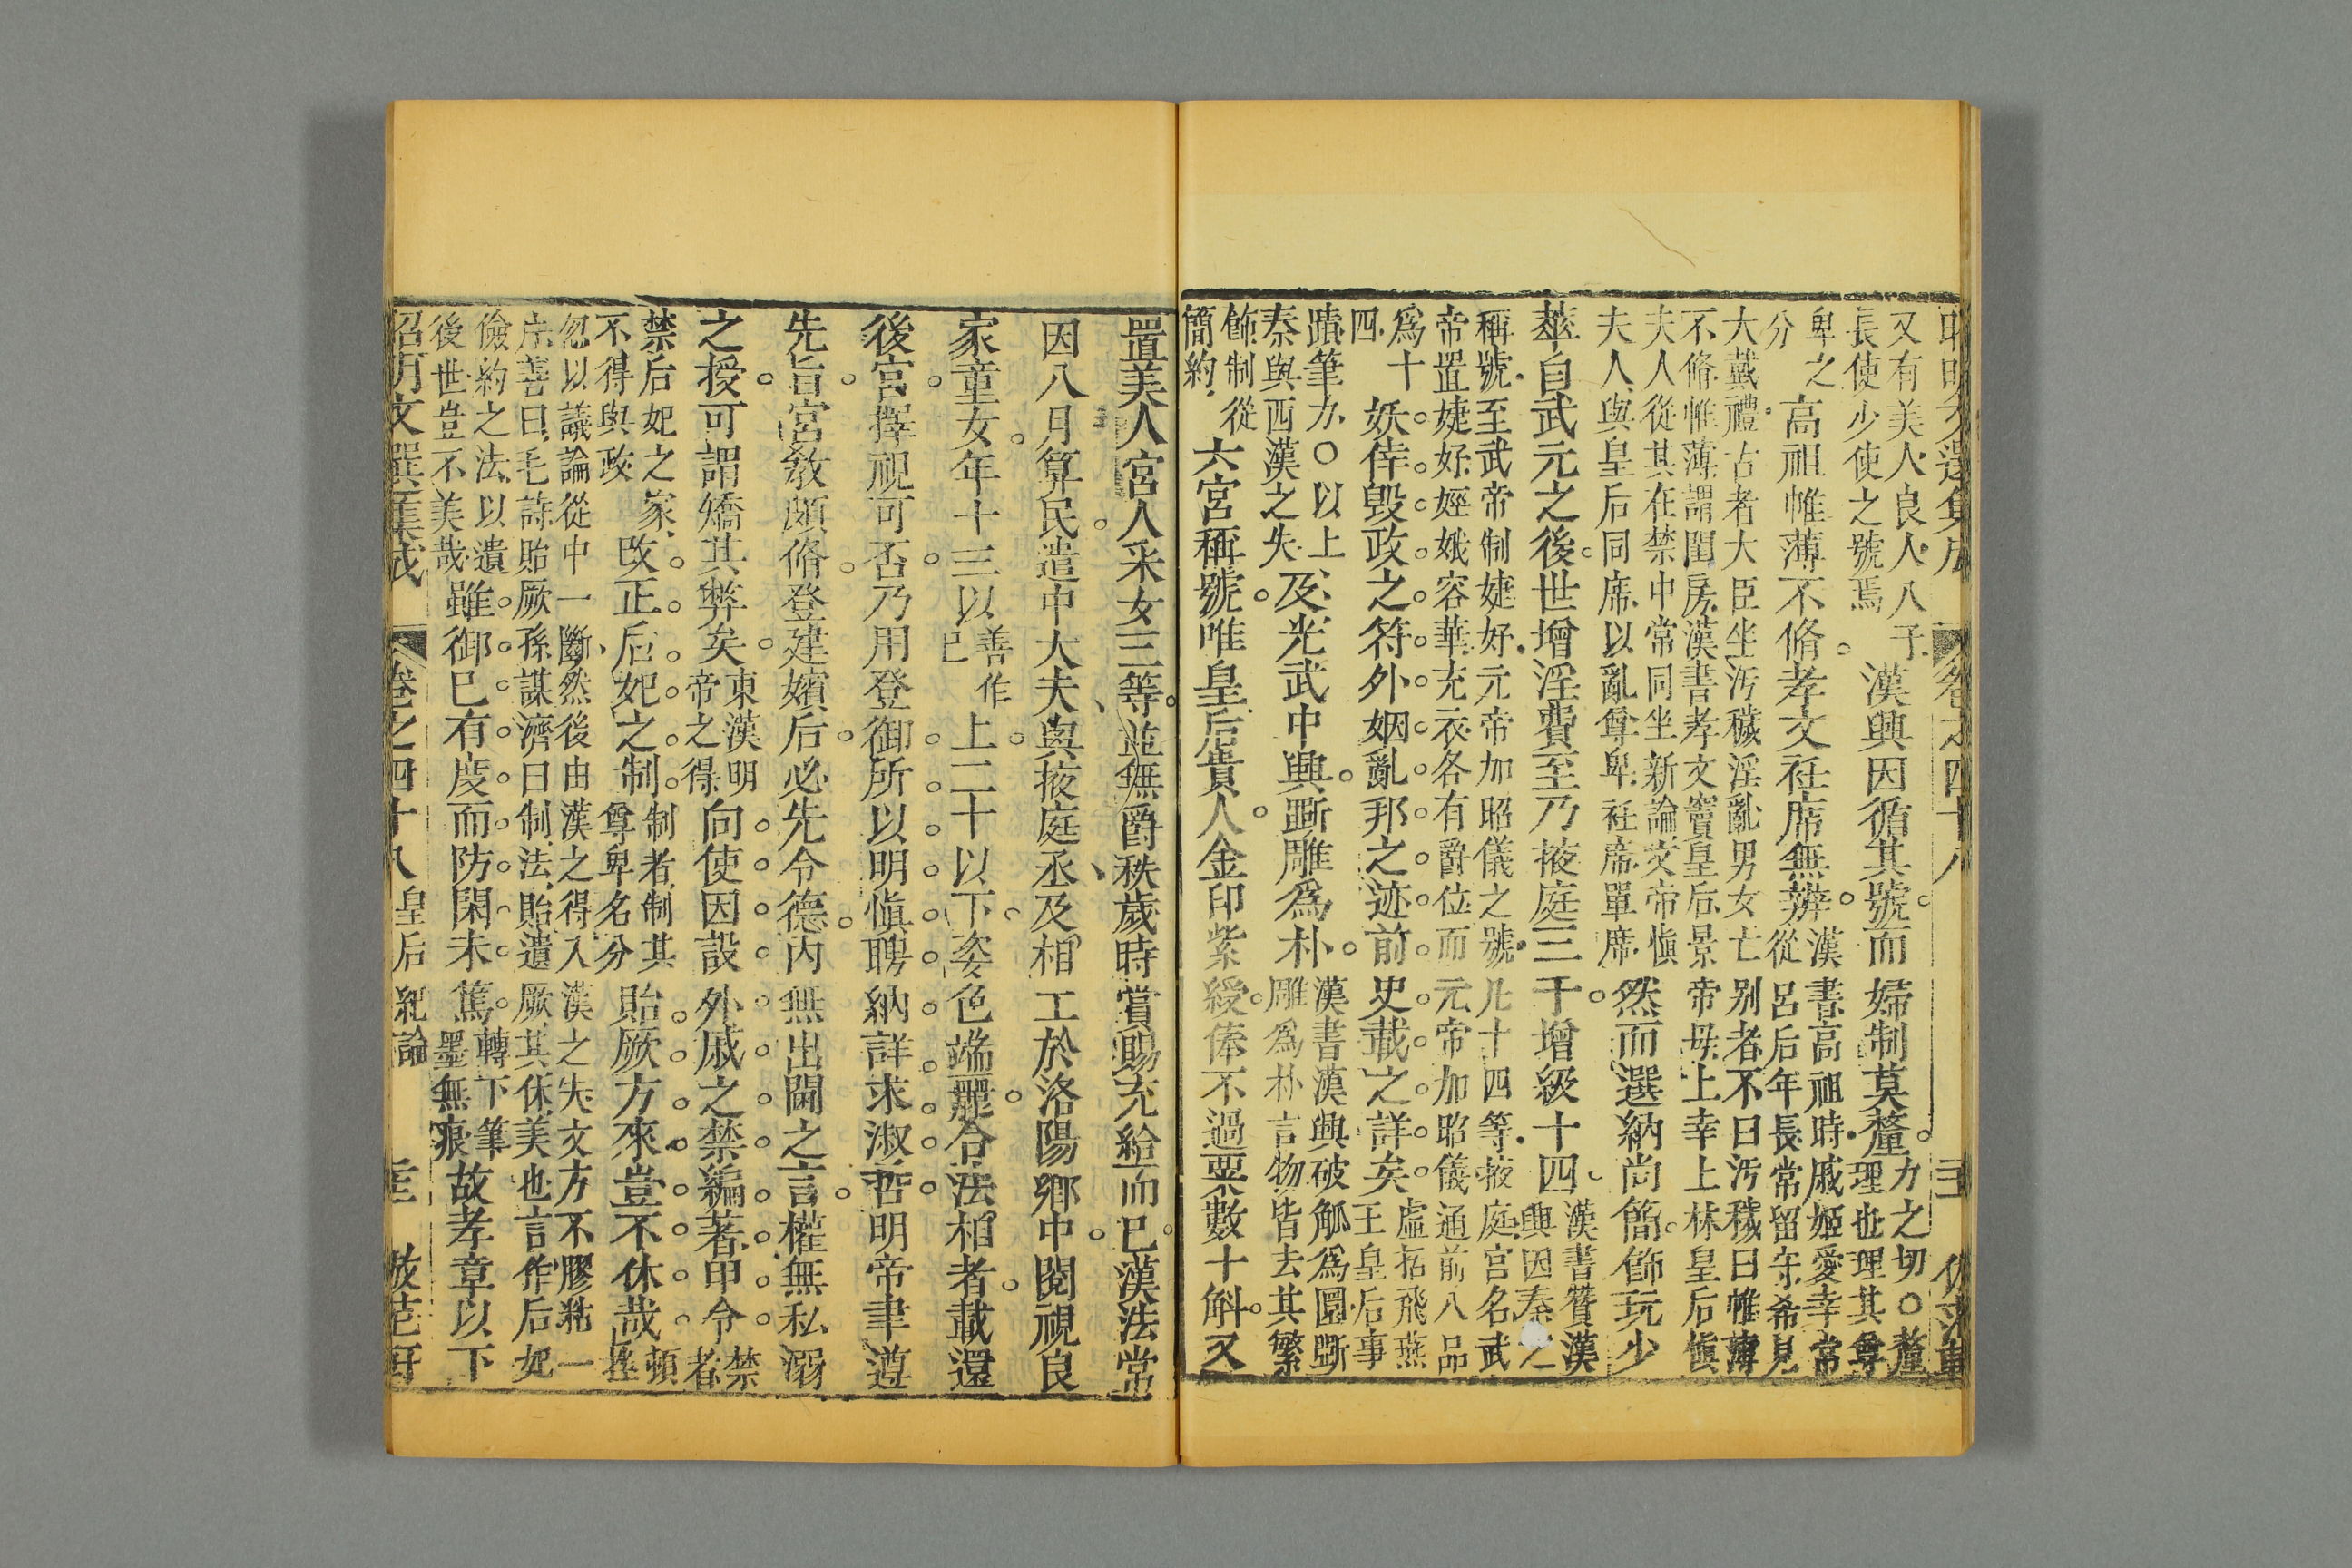 昭明文選集成 卷之四十八
又有美人良人八子
長使少使之號焉
漢興因循其號而婦制莫釐
力之切〇釐
理也理其尊
卑之
分
高祖帷薄不脩孝文衽席無辨
漢書高祖時戚姬愛幸常
從呂后年長常留守希見
大戴禮古者大臣坐汚穢淫亂男女亡別者不曰汚穢曰帷薄
不脩帷薄謂閨房漢書孝文竇皇后景帝母上幸上林皇后愼
夫人從其在禁中常同坐新論文帝愼
夫人與皇后同席以亂尊卑衽席單席
然而選納尚簡飾玩少
華自武元之後世增淫費至乃掖庭三千增級十四
漢書贊漢
興因秦之
稱號至武帝制婕妤元帝加昭儀之號凡十四等掖庭宮名武
帝置婕妤娙娥容華充衣各有爵位而元帝加昭儀通前八品
爲十
四
妖倖毀政之符外姻亂邦之迹前史載之詳矣
虛拓飛燕
王皇后事
蹟筆力〇以上
秦與西漢之失
及光武中興斲雕爲朴
漢書漢興破觚爲圜斲
雕爲朴言物皆去其繁
飾制從
簡約
六宮稱號唯皇后貴人金印紫綬俸不過粟數十斛又
置美人宮人采女三等並無爵秩歲時賞賜充給而已漢法常
因八月算民遣中大夫與掖庭丞及相工於洛陽鄉中閱視良
家童女年十三以
善作
已
上二十以下姿色端麗合法相者載還
後宮擇視可否乃用登御所以明愼聘納詳求淑哲明帝聿遵
先旨宮敎頗脩登建嬪后必先令德內無出閫之言權無私溺
之授可謂矯其弊矣
東漢明
帝之得
向使因設外戚之禁編著甲令
禁
者
禁后妃之家
不得與政
改正后妃之制
制者制其
尊卑名分
貽厥方來豈不休哉
頓挫
忽以議論從中一斷然後由漢之得入漢之失文方不膠黏一
序善曰毛詩貽厥孫謀濟曰制法貽遺厥其休美也言作后妃
儉約之法以遺
後世豈不美哉
雖御已有度而防閑未篤
轉下筆
墨無痕
故孝章以下
昭明文選集成 卷之四十八 皇后紀論